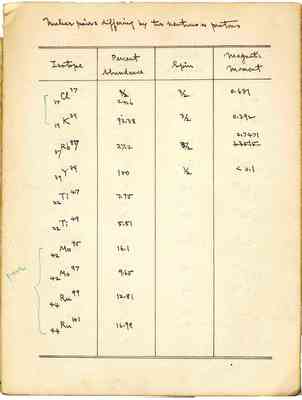 Nuclear pairs differing by two neutrons or protons
Isotope Percent Abundance Spin Magnetic Moment
17 Cl 37 24.6 5/2 0.681
19 K 39 93.38 3/2 0.392
37 Rb 87 27.2 3/2 2.7471
39 Y 89 100 1/2 < 0.1
22 Ti 47 7.75
22 Ti 49 5.51
42 Mo 95 16.1
42 Mo 97 9.65
44 Ru 99 12.81
44 Ru 101 16.98